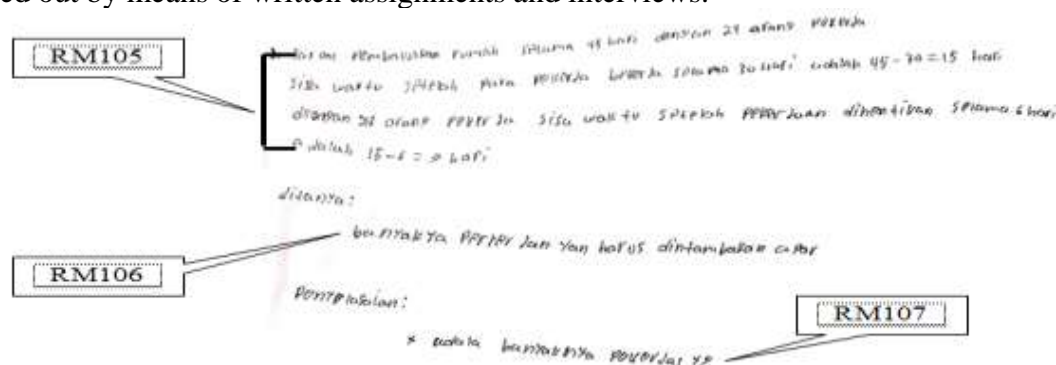 ed out by means of written assignments and interviews.
RM105
rumah selama 45 hari dengan 24 orang pekerja
sisa waktu setelah para pekerja bekerja selama 30 hari adalah 45-30=15 hari
dengan orang pekerja sisa waktu setelah pekerjaan dihentikan selama 6 hari
adalah 15-6 = 9 hari
ditanya:
RM106
banyakya yan harus dintambakan agar
Penyelesaian:
RM107
x adala banyaknya